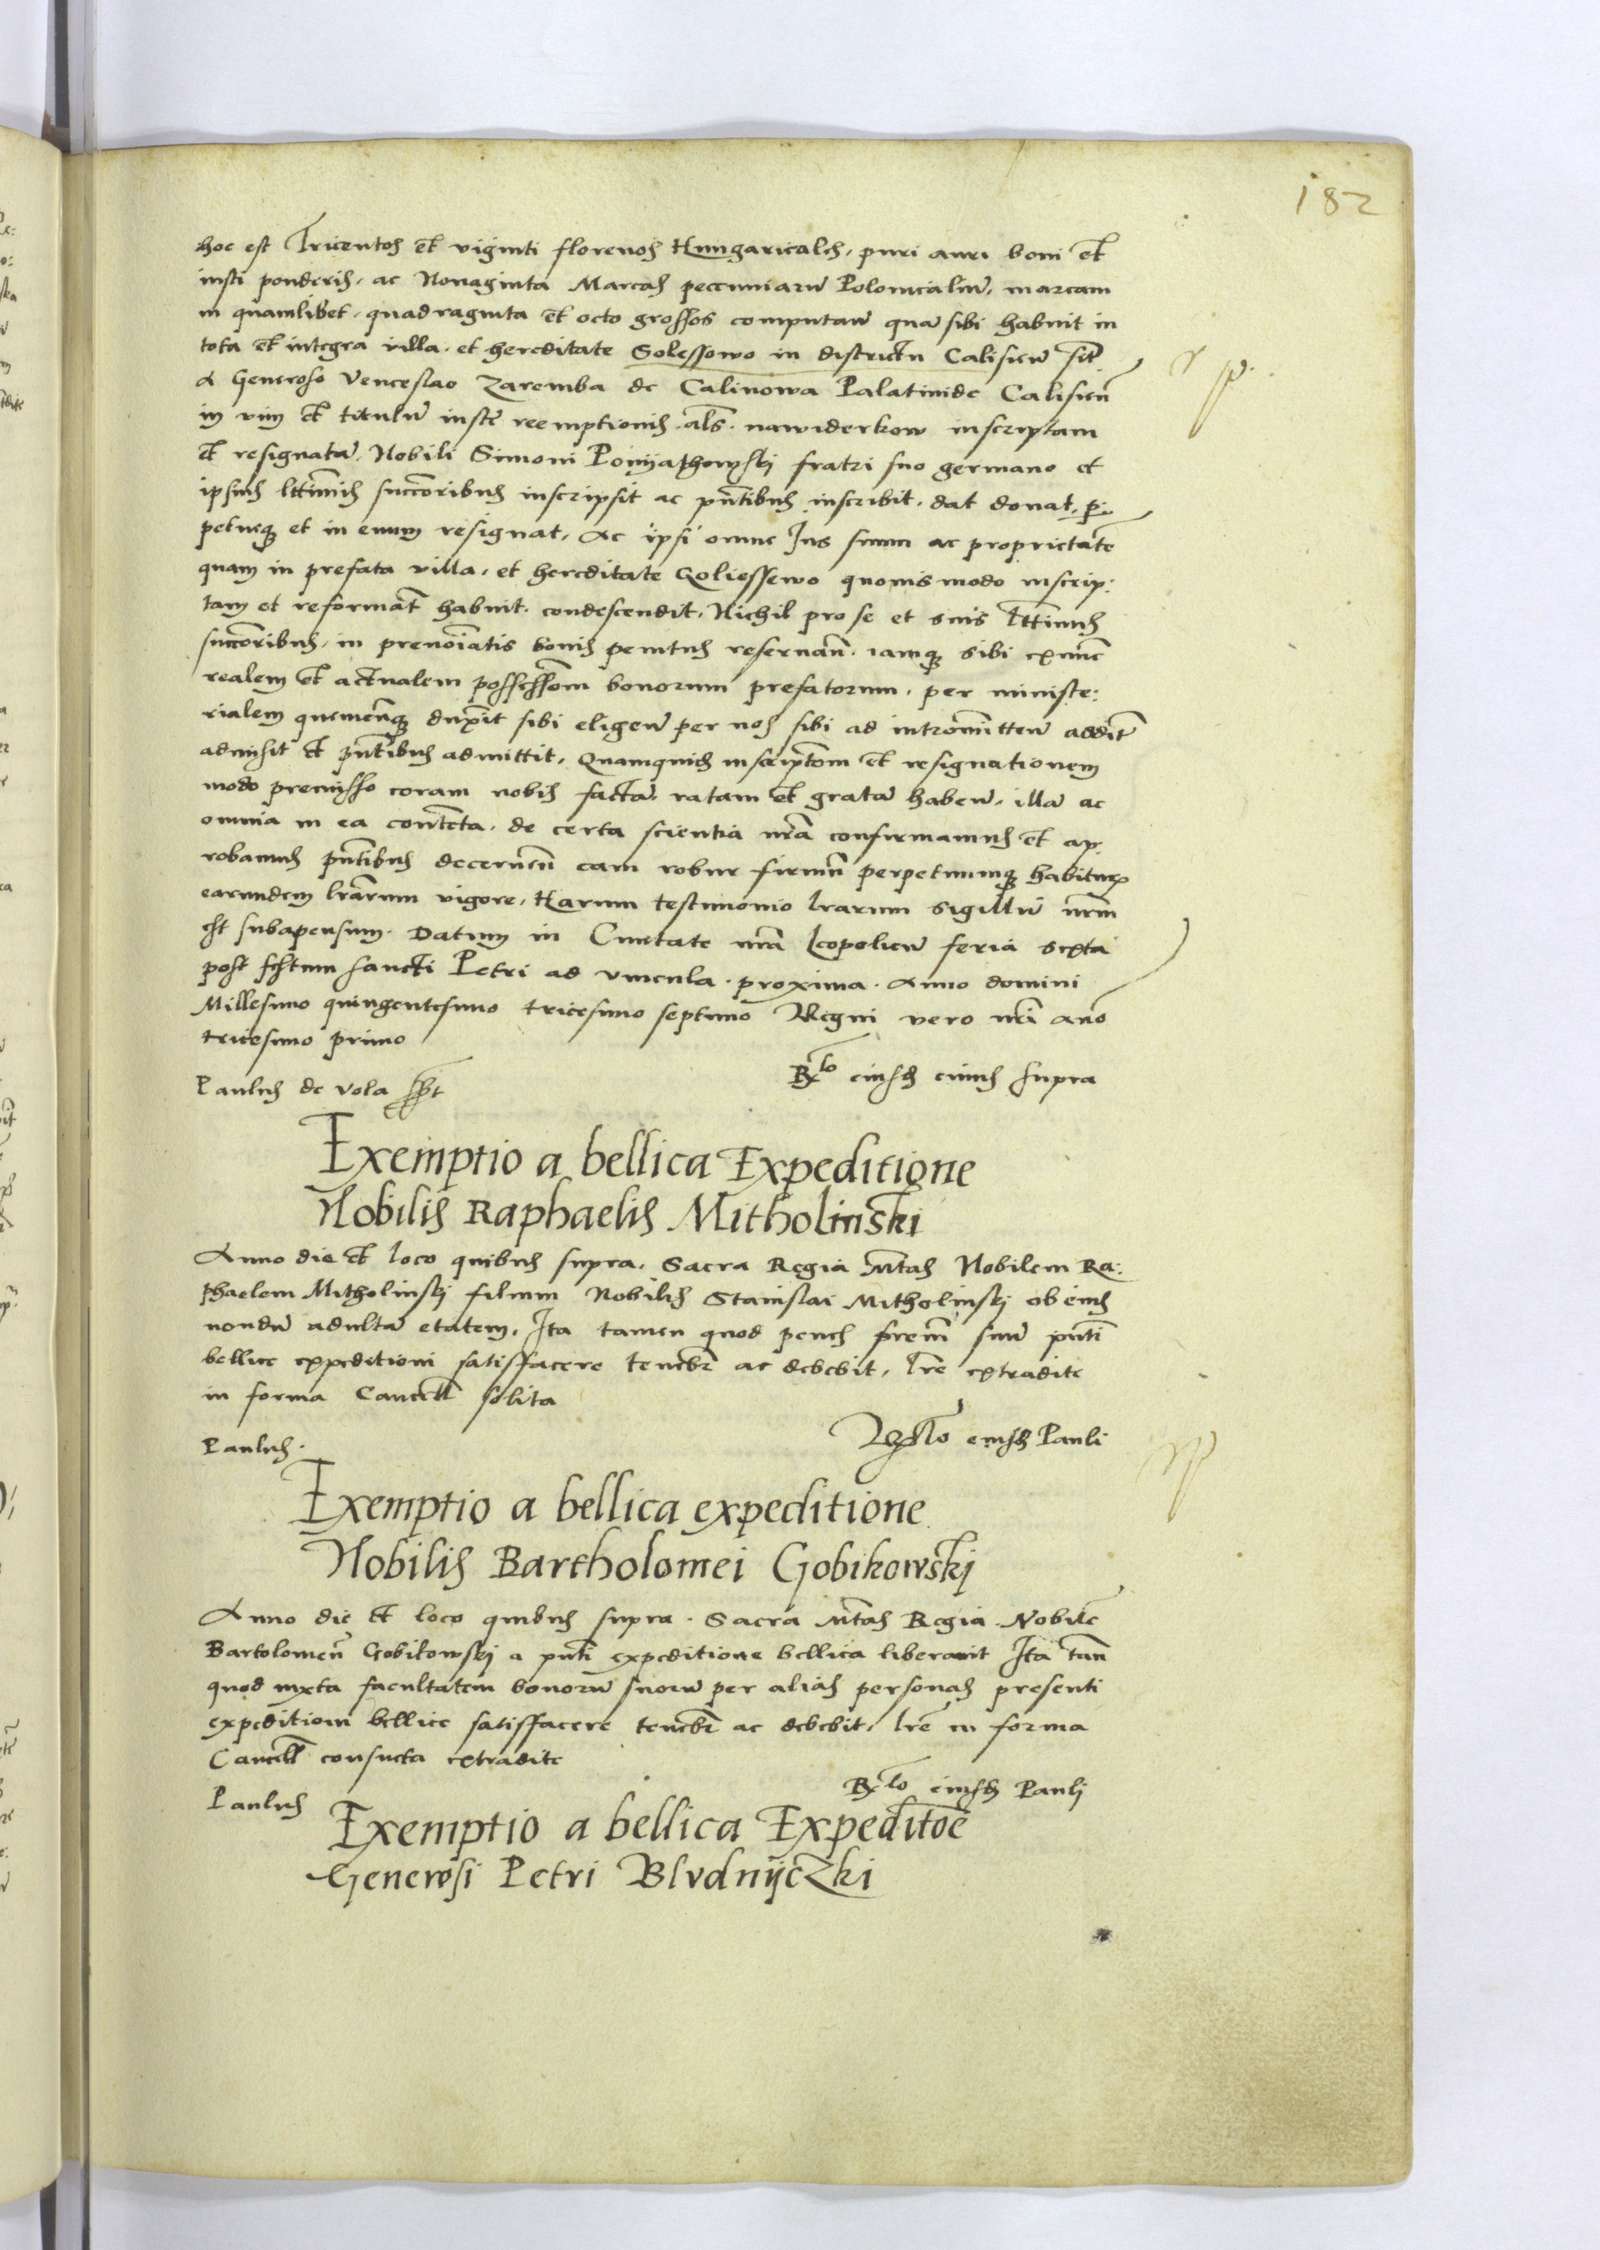 182
hoc est Tricentos et viginti florenos Hungaricales, puri auri boni et
iusti ponderis, ac Nonaginta Marcas pecuniarũ Polonicaliũ, marcam
in quamlibet, quadraginta et octo grossos computañ quã sibi habuit in
tota et integra villa, et hereditate Golessowo in districtu Calisieñ sit.
A Generoso Venceslao Zaremba de Calinowa Palatinide Calisieñ
in vim et titulũ iuste reemptionis als. nawiderkow inscriptam
et resignatã. Nobili Simoni Poniyathowskj fratri suo germano et
ipsius lttimis succoribus inscripsit ac pñtibus inscribit, dat donat, p̱:
petueq̃ et in euum resignat, Ac ipsi omne Ius suum ac proprietatẽ
quam in prefata villa, et hereditate Goliessewo quouismodo inscrip:
tam et reformat̃ habuit, condescendit, Nichil pro se et suis lttimis
succoribus, in prenoĩatis bonis penitus reseruañ. iamq̃ sibi exnũc
realem et actualem possessioẽm bonorum prefatorum, per ministe:
rialem quemcũq̃ duxerit sibi eligeñ per nos sibi ad intromitteñ additũ
admisit et pñtibus admittit, Quamquidẽ inscriptõem et resignationem
modo premisso coram nobis factã, ratam et gratã habeñ, illã ac
omnia in ea contẽta, de certa scientia nrã confirmamus et ap:
robamus pñtibus decerneñ eam robur firmũ perpetuumq̃ habiturã
earundem lrãrum vigore, Harum testimonio lrarum sigillũ nrm̃
est subapensum. Datum in Ciuitate nrã Leopolieñ feria sexta
post festum sancti Petri ad vincula, proxima. Anno domini
Millesimo quingentesimo tricesimo septimo Regni vero nrĩ anõ
tricesimo primo
Paulus de Vola sspt
Rlo eiusdẽ cuius supra
Exemptio a bellica Expeditione
Nobilis Raphaelis Mitholinski
Anno die et loco quibus supra, Sacra Regia Mtas Nobilem Ra:
phaelem Mitholinskj filium Nobilis Stanislai Mitholinskj ob eius
nondũ adultã etatem, Ita tamen quod penes frem̃ suũ pñti
bellice expeditioni satisfacere tenebr̃ ac debebit, lrẽ extradite
in forma Cancell̃ solita
Paulus.
Relo eiusdẽ Pauli
Exemptio a bellica expeditione
Nobilis Bartholomei Gobikowskj
Anno die et loco quibus supra. Sacra Mtas Regia. Nobilẽ
Bartolomeũ Gobikowskj a pñti expeditione bellica liberauit Ita tañ
quod iuxta facultatem bonorũ suorũ per alias personas presenti
expeditioni bellice satisfacere tenebr̃ ac debebit, lrẽ in forma
Cancell̃ consueta extradite
Paulus
Rlo eiusdẽ Pauli
Exemptio a bellica Expeditõe
Generosi Petri Blvdnijczki